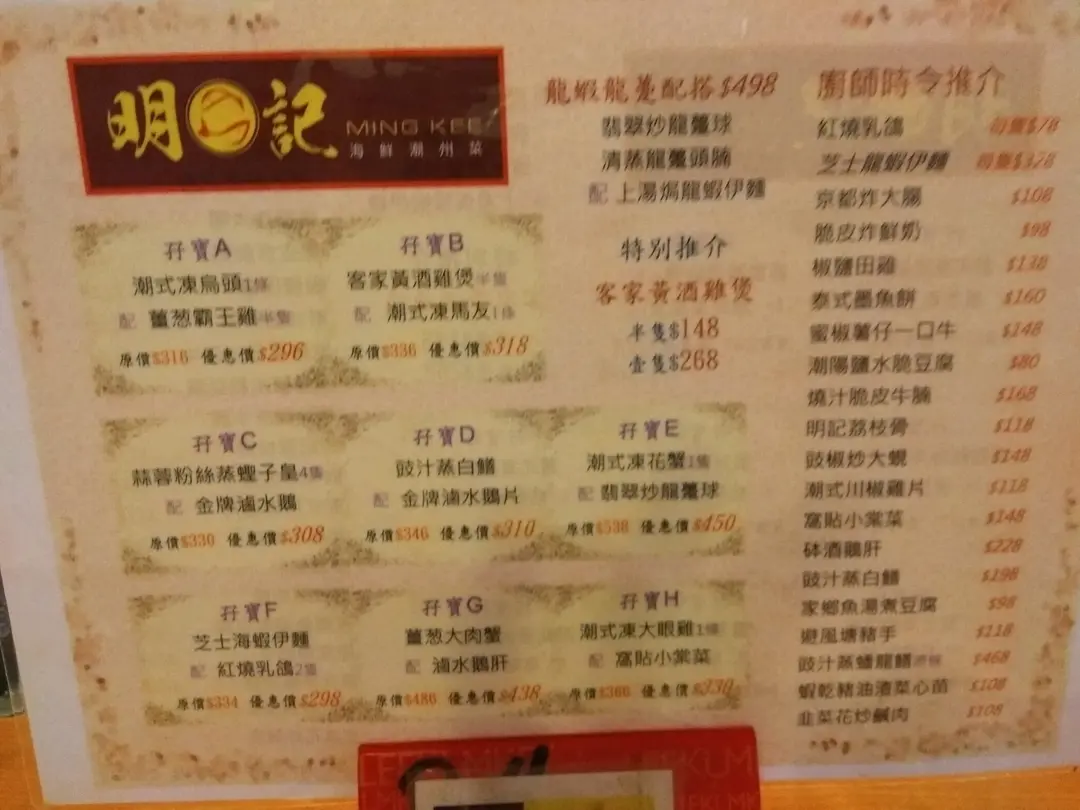 明記
MING KEE
海鮮潮州菜
龍蝦龍躉配搭$498
翡翠炒龍躉球
清蒸龍躉頭腩
配 上湯焗龍蝦伊麵
特別推介
客家黃酒雞煲
半隻$148
壹隻$268
孖寶A
潮式凍烏頭1條
配 薑葱霸王雞半隻
原價$316 優惠價$296
孖寶B
客家黃酒雞煲半隻
配 潮式凍馬友1條
原價$336 優惠價$318
孖寶C
蒜蓉粉絲蒸蟶子皇4隻
配 金牌滷水鵝
原價$330 優惠價$308
孖寶D
豉汁蒸白鱔
配 金牌滷水鵝片
原價$346 優惠價$310
孖寶E
潮式凍花蟹1隻
配 翡翠炒龍躉球
原價$538 優惠價$450
孖寶F
芝士海蝦伊麵
配 紅燒乳鴿2隻
原價$334 優惠價$298
孖寶G
薑葱大肉蟹
配 滷水鵝肝
原價$486 優惠價$438
孖寶H
潮式凍大眼雞1條
配 窩貼小棠菜
原價$366 優惠價$330
廚師時令推介
紅燒乳鴿 每隻$78
芝士龍蝦伊麵 每隻$328
京都炸大腸 $108
脆皮炸鮮奶 $98
椒鹽田雞 $138
泰式墨魚餅 $160
蜜椒薯仔一口牛 $148
潮陽鹽水脆豆腐 $80
燒汁脆皮牛腩 $168
明記荔枝骨 $118
豉椒炒大蜆 $148
潮式川椒雞片 $118
窩貼小棠菜 $148
砵酒鵝肝 $228
豉汁蒸白鱔 $198
家鄉魚湯煮豆腐 $98
避風塘豬手 $118
豉汁蒸蟠龍鱔 $468
蝦乾豬油渣菜心苗 $108
韭菜花炒鹹肉 $108